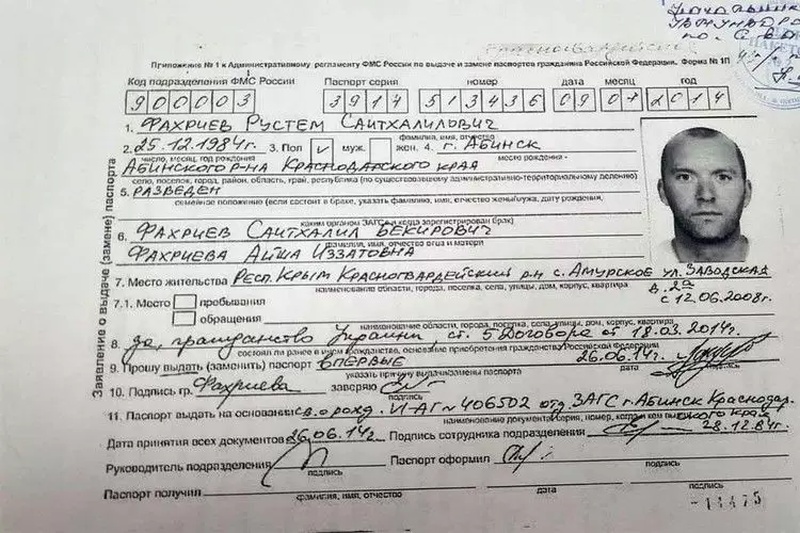 Начальник
по
Приложение № 1 к Административному регламенту ФМС России по выдаче и замене паспортов гражданина Российской Федерации. Форма № 1П
Код подразделения ФМС России Паспорт серия номер дата месяц год
900003 3914 513436 09 07 2014
1. Фахриев Рустем Саитхалилович
фамилия, имя, отчество
2. 25.12.1984г. 3. Пол ✓ муж. жен. 4. г. Абинск
число, месяц, год рождения место рождения -
Абинского р-на Краснодарского края
село, поселок, город, район, область, край, республика (по существовавшему административно-территориальному делению)
5. Разведен
семейное положению (если состоит в браке, указать фамилию, имя, отчество жены/мужа, дату рождения,
каким органом ЗАГСа и когда зарегистрирован брак)
6. Фахриев Саитхалил Бекирович
Фахриева Айша Иззатовна
фамилия, имя, отчество отца и матери
7. Место жительства Респ. Крым Красногвардейский р-н с. Амурское ул. Заводская
наименование области, города, поселка, села, улицы, дом, корпус, квартира
д. 2а
с 12.06.2008г.
7.1. Место пребывания
обращения
наименование области, города, поселка, села, улицы, дом, корпус, квартира
8. да, гражданство Украины, ст. 5 Договора от 18.03.2014г.
состоял ли ранее в ином гражданстве, основание приобретения гражданства Российской Федерации
9. Прошу выдать (заменить) паспорт впервые 26.06.14г.
указать причину выдачи/замены паспорта дата подпись
10. Подпись гр. Фахриева заверяю
подпись
11. Паспорт выдать на основании св. о рожд. VI-АГ № 406502 отд. ЗАГС г. Абинск Краснодар.
наименование документа серия, номер, когда и кем выдан
ского края
28.12.84г.
Дата принятия всех документов 26.06.14г. Подпись сотрудника подразделения
Руководитель подразделения Паспорт оформил
подпись подпись
Паспорт получил
фамилия, имя, отчество дата подпись
Заявление о выдаче (замене) паспорта
-14475